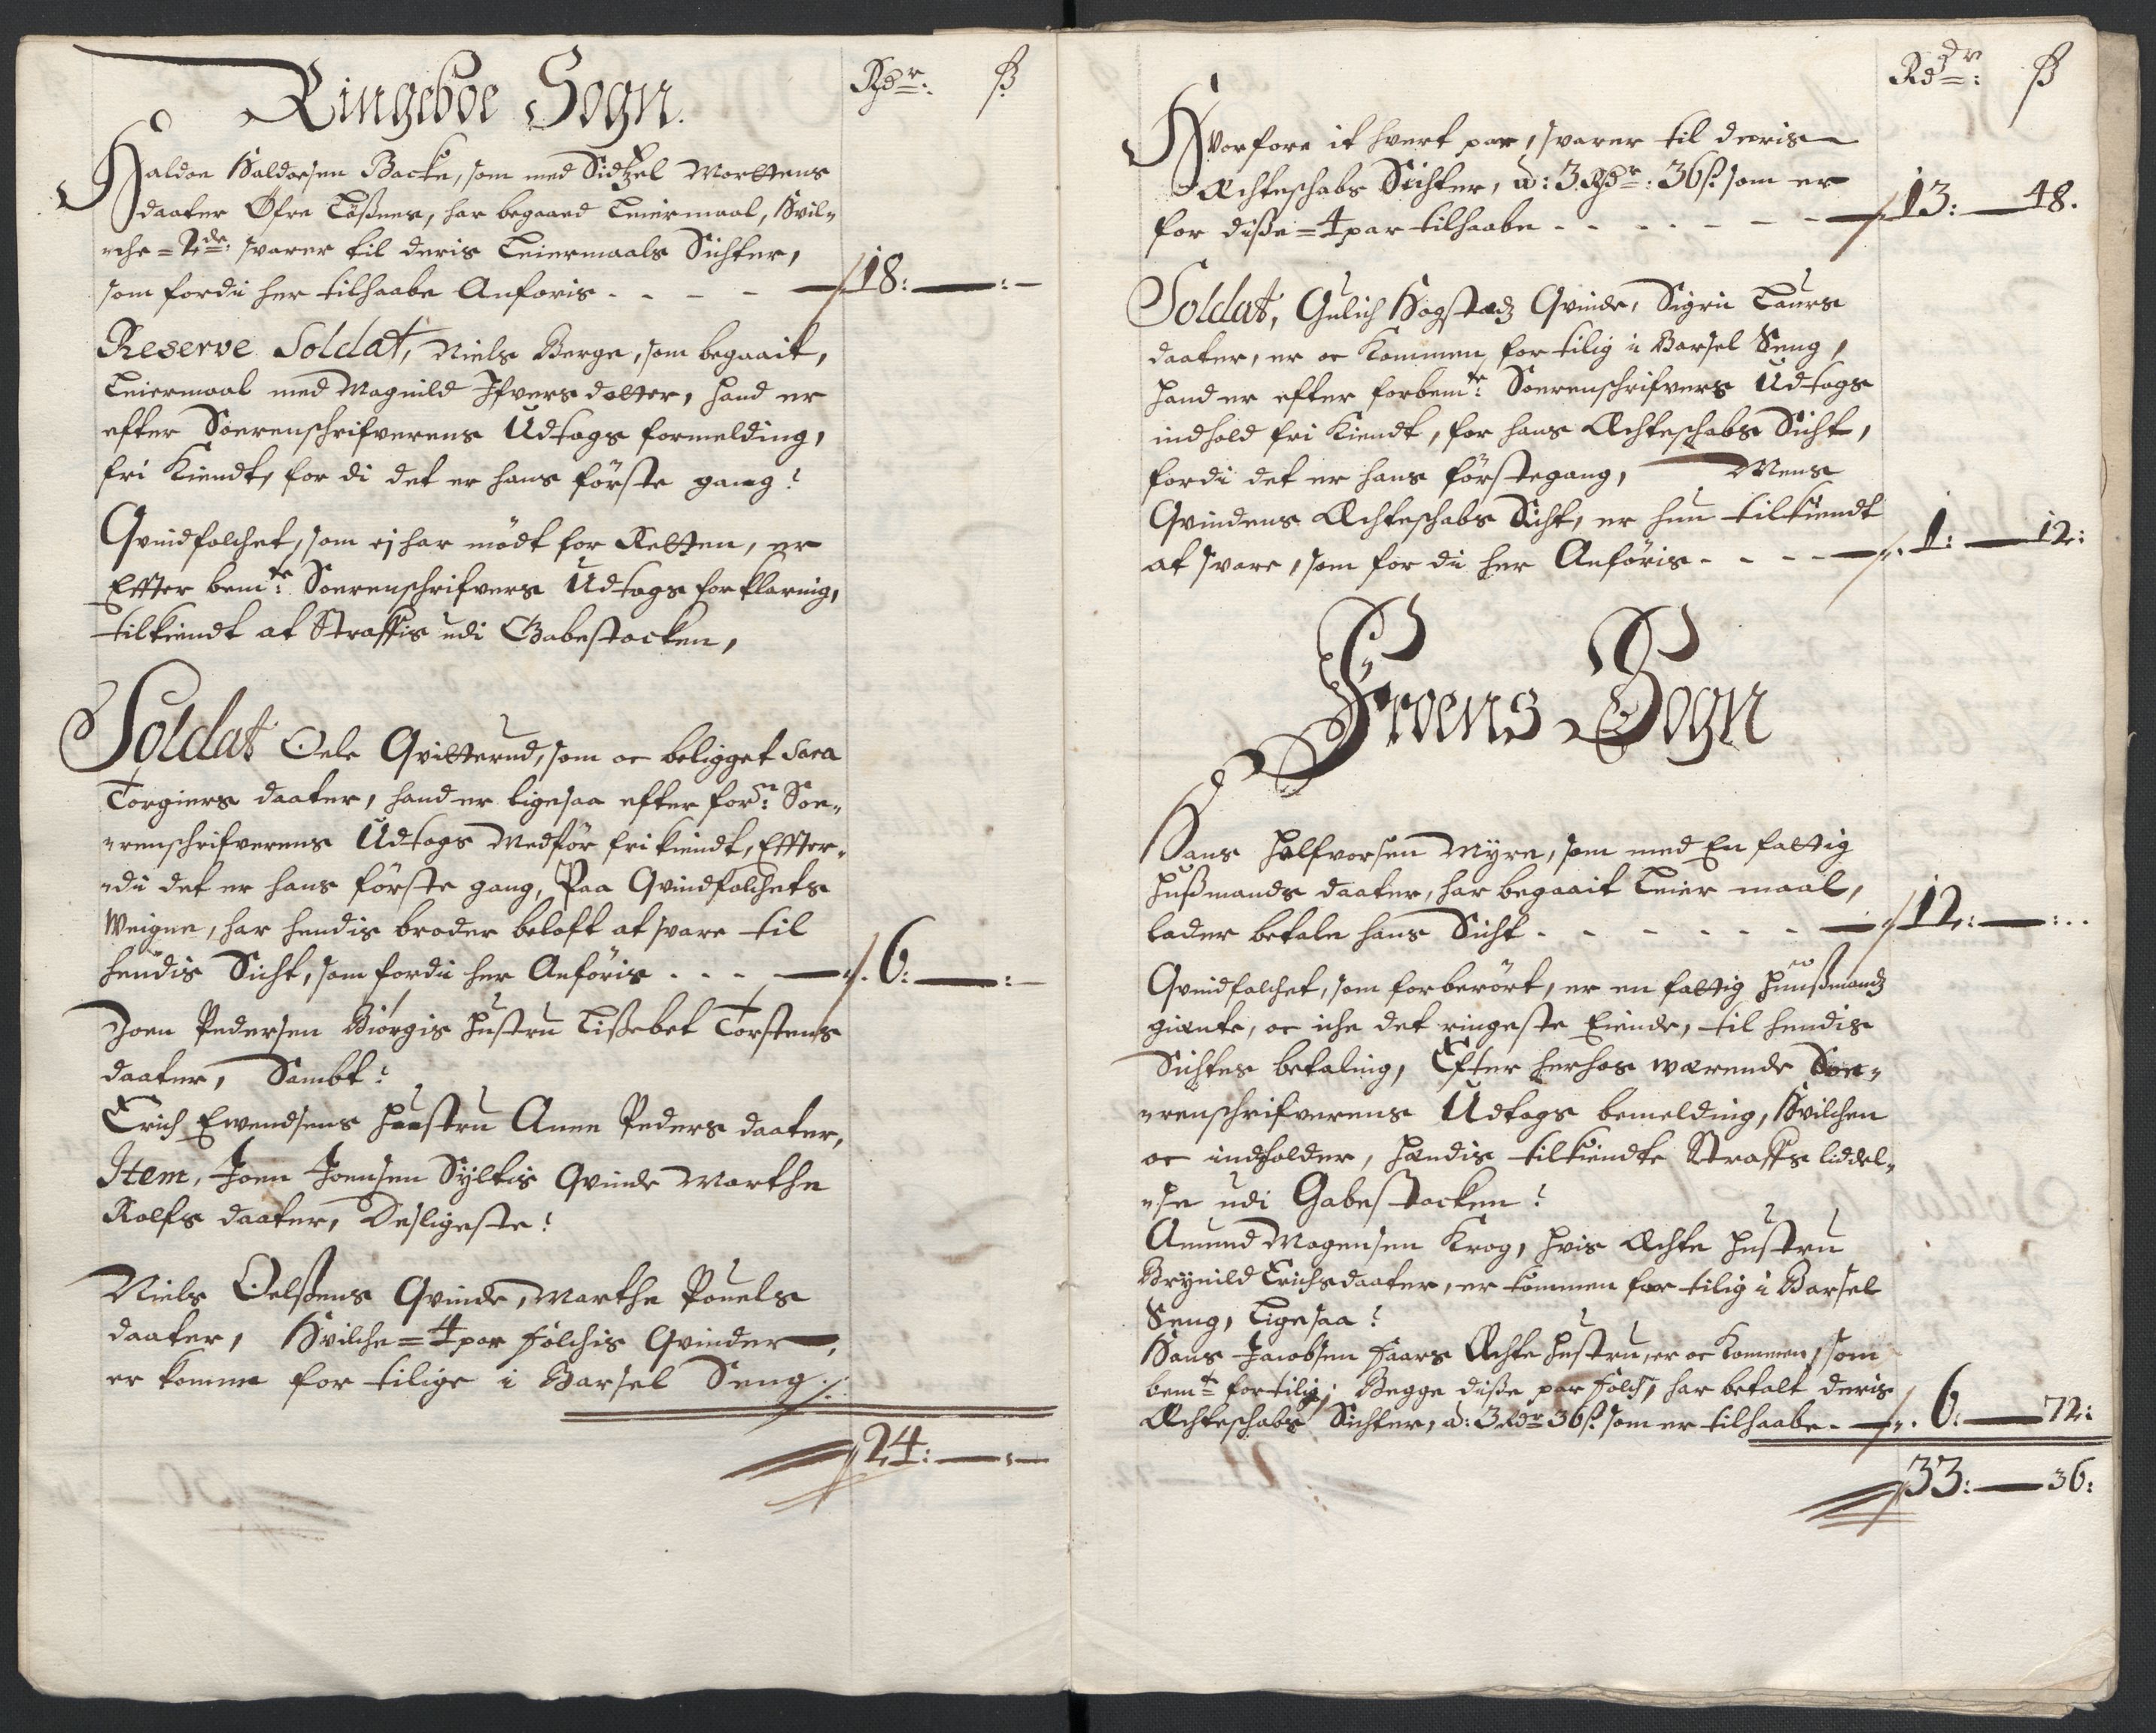 Ringeboe Sogn.
Rdr: ß
Haldor Haldorsen Backe, som med Sidtzel Morttens
daater Øfre Lößnes, har begaaed Leiermaal, Hvil-
-che = 2de: svarer til deris Leiermaals Sichter,
som fordi her tilhaabe Anføris - - - - 18: — : —
Reserve Soldat, Niels Berge, som begaait,
Leiermaal med Magnild Ifvers dotter, hand er
efter Soerenschrifverens Udtogs formelding,
fri Kiendt, for di det er hans förste gang:
Qvindfolchet, som ej har mödt for Retten, er
Effter bemte: Soerenschrifvers Udtogs forklaring,
tilkiendt at Straffis udi Gabestocken,
Soldat Oele Qvitterud, som oc beligget Sara
Torgiers daater, hand er ligesaa efter forne: Soe-
-renschrifverens Udtogs Medför fri kiendt, Effter-
-di det er hans förste gang, Paa Qvindfolchets
Weigne, har hendis broder beloft at svare til
hendis Sicht, som fordi her Anföris - - - 6: — : —
Joen Pedersen Biörgis Hustru Lißebet Torstens
daater, Sambt:
Erich Ewendsens Hustru Anne Peders daater,
Item, Joen Joensen Syltis Qvinde Marthe
Rolfs daater, Desligeste:
Niels Oelßens Qvinde, Marthe Pouels
daater, Hvilche = 4 par folchis Qvinder,
er komme for tilige i Barsel Seng ./.
24: — : —
Rdr: ß
Hvorfore it hvert par, svarer til deris
Ächteschabs Sichter, á: 3 Rdr: 36 ß: som er
for diße = 4 par tilhaabe - - - - - 13: — 48.
Soldat, Gulich Hogstadz Qvinde, Sigri Laurs
daater, er oc Kommen for tilig i Barsel Seng,
Hand er efter forbemte: Soerenschrifvers Udtogs
indhold fri Kiendt, for hans Ächteschabs Sicht,
fordi det er hans förstegang, Mens
Qvindens Ächteschabs Sicht, er hun tilkiendt
at svare, som for di her Anföris - - - 1: — 12:
Froens Sogn
Hans Halfvorsen Myre, som med En fattig
Hußmands daater, har begaait Leier maal,
lader betale hans Sicht - - - - - - 12: — : -
Qvindfolchet, som forberört, er en fattig Huußmandz
giænte, oc iche det ringeste Eiende, til hendis
Sichtes betaling, Efter herhos wærende Soe-
-renschrifverens Udtogs bemelding, Hvilchen
oc indholder, Hændis tilkiendte Straffs liddel-
-se udi Gabestocken:
Amund Mogensen Krog, Hvis Ächte Hustru
Brynild Erichsdaater, er kommen for tilig i Barsel
Seng, Ligesaa:
Hans Jacobsen Haars Ächte Hustru, er oc Kommen, som
bemte fortilig; Begge diße par folch, har betalt deris
Ächteschabs Sichter, á: 3 Rdr 36 ß: som er tilhaabe - 6: — 72:
33: — 36: